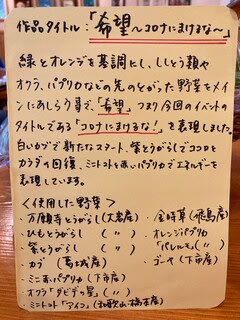 作品タイトル：「希望
～コロナにまけるな～」
緑とオレンジを基調にし、ししとう類や
オクラ、パプリカなどの先のとがった野菜をメイ
ンにあしらう事で、「希望」つまり今回のイベントの
タイトルである「コロナにまけるな！」を表現しました。
白いカブで新たなスタート、紫とうがらしでココロと
カラダの回復、ミニトマトと赤いパプリカでエネルギーを
表現しています。
＜使用した野菜＞
・万願寺とうがらし（大岩産）
・ひもとうがらし（ 〃 ）
・紫とうがらし（ 〃 ）
・カブ（葛城産）
・ミニ赤パプリカ（下市産）
・オクラ「ダビデの星」（ 〃 ）
・ミニトマト「アイコ」（和歌山橋本産）
・金時草（飛鳥産）
・オレンジパプリカ
「パレルモ」（ 〃 ）
・ゴーヤ（下市産）